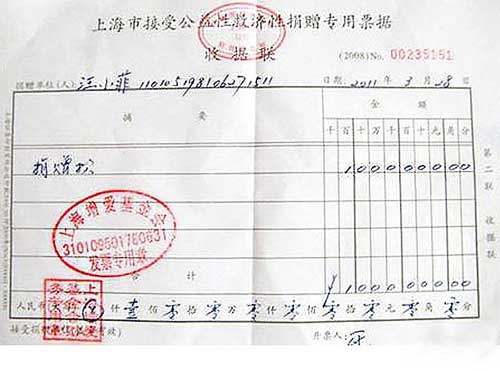 上海市接受公益性救济性捐赠专用票据
收据联
(2008)No. 00235151
捐赠单位(人): 汪小菲 110105198106271511
日期: 2011 年 3 月 28 日
摘 要
金 额
千 百 十 万 千 百 十 元 角 分
捐赠款
1 0 0 0 0 0 0 0 0
第二联 收据联
上海增爱基金会
310109501780631
发票专用章
合 计
¥ 1 0 0 0 0 0 0 0 0
人民币 仟 壹 佰 零 拾 零 万 零 仟 零 佰 零 拾 零 元 零 角 零 分
接受捐赠
有效)
开票人: